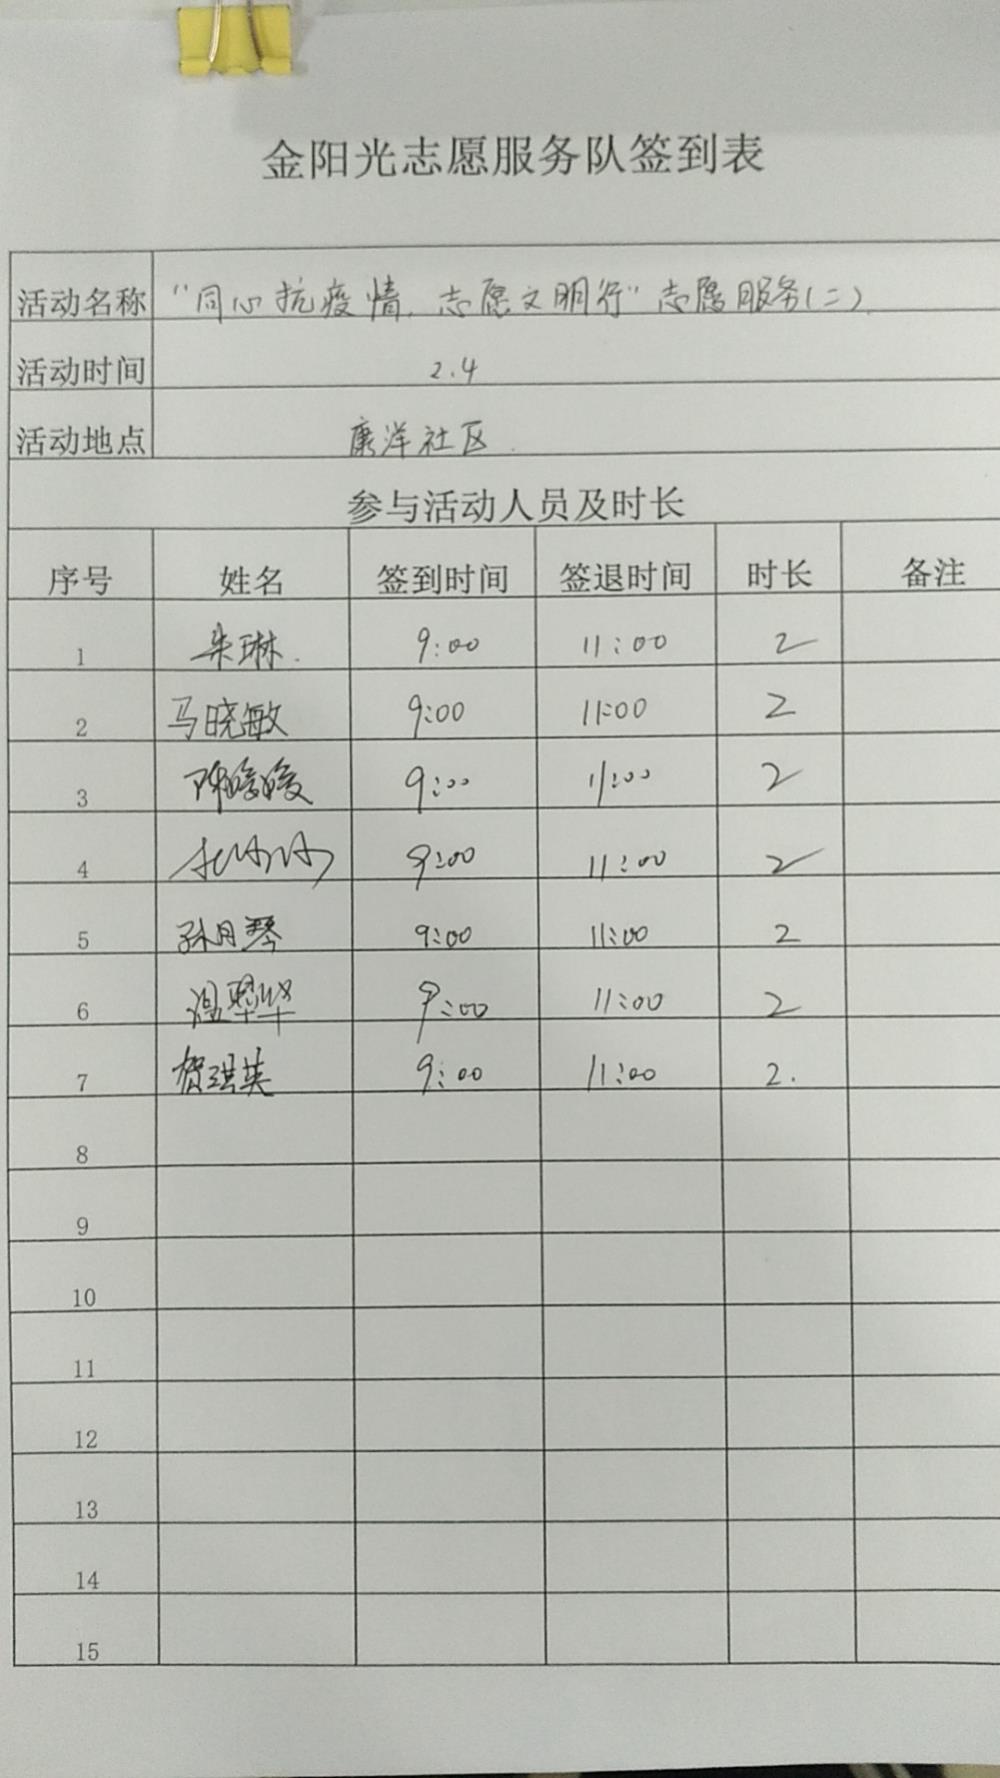 金阳光志愿服务队签到表
活动名称 "同心抗疫情,志愿文明行"志愿服务(二)
活动时间 2.4
活动地点 康洋社区
参与活动人员及时长
序号 姓名 签到时间 签退时间 时长 备注
1 朱琳 9:00 11:00 2
2 马晓敏 9:00 11:00 2
3 陈媛媛 9:00 11:00 2
4 9:00 11:00 2
5 孙月琴 9:00 11:00 2
6 温翠华 9:00 11:00 2
7 贺琪英 9:00 11:00 2.
8
9
10
11
12
13
14
15